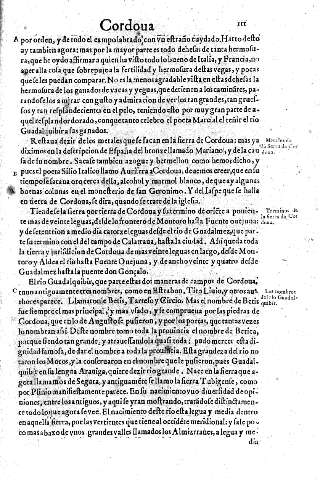 Cordoua 111
A por orden, y de todo el campo labrado con vn estraño cuydado. Harto desto
ay tambien agora: mas por la mayor parte es todo dehesas de tanta hermosu-
ra, que he oydo afirmar a quien ha visto todo lo bueno de Italia, y Francia, no
auer alla cosa que sobrepuje a la fertilidad y hermosura destas vegas, y pocas
que se les puedan comparar. No es la menos agradable vista en estas dehesas la
hermosura de los ganados de vacas y yeguas, que detienen a los caminãtes, pa-
randose los a mirar con gusto y admiracion de ver los tan grandes, tan gracio
sos y tan resplandecientes en el pelo, teniendo esto por muy gran parte de a-
quel resplandor dorado, con que tanto celebro el poeta Marcial tener el rio
Guadalquibir sus ganados.
Restaua dezir de los metales que se facan en la sierra de Cordoua: mas ya
diximos en la descripcion de España del bronze llamado Mariano, y de la cau
sa de su nombre. Sacase tambien azogue y bermellon como hemos dicho, y
pues el poeta Silio Italico llamo Aurifera a Cordoua, deuemos creer, que en su
tiempo se facaua oro cerca della, alcohol y marmol blanco, de que ay algunas
buenas colunas en el monesterio de san Geronimo. Y del Iaspe que se halla
en tierra de Cordoua, se dira, quando se trate de la iglesia.
Tiendese la sierra por tierra de Cordoua y su termino de oriẽte a ponien-
te mas de veinte leguas, desde lo frontero de Montoro hasta Fuente ouejuna:
y de setentrion a medio dia catorze leguas desde el rio de Guadalmez, que par-
te su termino con el del campo de Calatraua, hasta la ciudad. Asi queda toda
la tierra y jurisdicion de Cordoua de mas veinte leguas en largo, desde Mon-
toro y Aldea el rio hasta Fuente Ouejuna, y de ancho veinte y quatro desde
Guadalmez hasta la puente don Gonçalo.
El rio Guadalquibir, que passa estas dos maneras de campos de Cordoua,
tuuo antiguamente tres nombres, como en Estrabon, Tito Liuio, y otros au-
thores parece. Llamaronle Betis, Tartesso y Circio. Mas el nombre de Betis
fue siempre el mas principal, y mas vsado, y se comprueua por las piedras de
Cordoua, que en lo de Augusto se pusieron, y por los poetas, que tantas vezes
lo nombran assi. Deste nombre tomo toda la prouincia el nombre de Betica,
porque siendo tan grande, y atrauesandola quasi toda: pudo merecer esta di-
gnidad famosa, de dar el nombre a toda la prouincia. Esta grandeza del rio no-
taron los Moros, y la conseruaron en el nombre que le pusieron, pues Guadal-
quibir en su lengua Arauiga, quiere dezir rio grande. Nace en la sierra que a-
gora llamamos de Segura, y antiguamẽte se llamo la sierra Tubigense, como
por Plinio manifiestamente parece. En su nacimiento vuo diuersidad de opi-
niones, entre los antiguos, y aqui se yran mostrando, tratãdose distinctamen-
te todo lo que agora se vee. El nacimiento deste rio esta legua y media dentro
en aquella sierra, por las vertientes que tiene al occidẽte meridional: y sale po-
co mas abaxo de vnos grandes valles llamados los Almiraues, a legua y me-
dia
Termino de
la sierra de Cor
doua.
Los nombres
del rio Guadal
quibir.